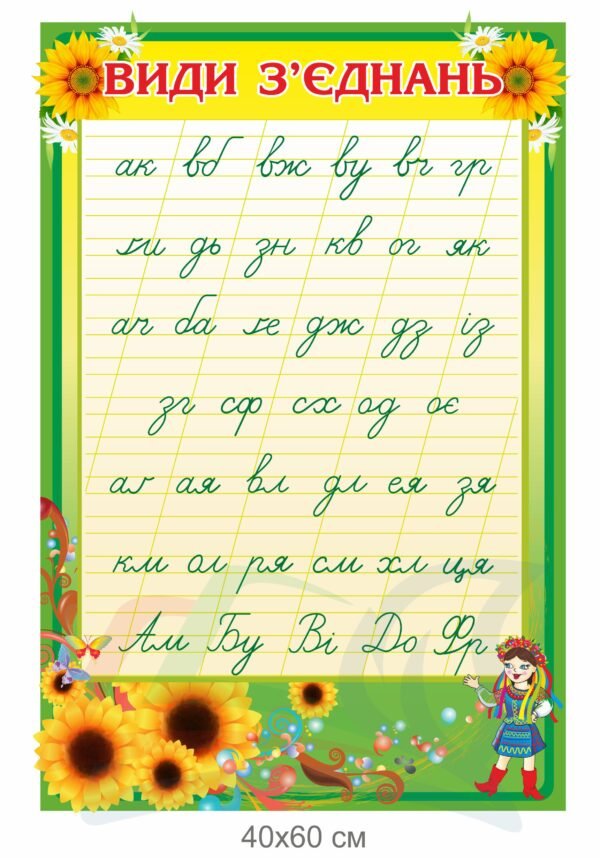 ВИДИ З’ЄДНАНЬ
ак вб вж ву вч гр
ги дь зн кв ог як
ач ба ге дж дз із
зг сф сх од оє
аг ая вл дл ея зя
км ол ря см хл ця
Ам Бу Ві До Фр
40х60 см